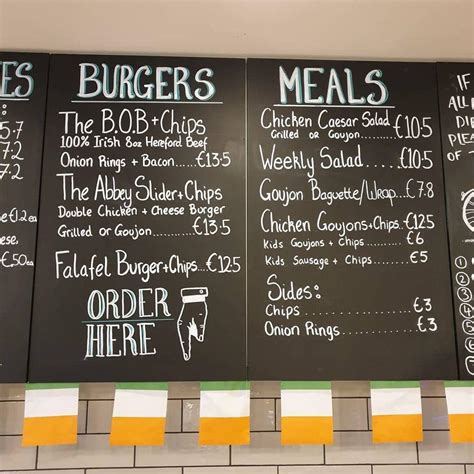 ES
5.7
7.2
7.2
€12ea
ese,
€5.0ea
BURGERS
The B.O.B + Chips
100% Irish 8oz Hereford Beef
Onion Rings + Bacon.....€13.5
The Abbey Slider + Chips
Double Chicken + Cheese Burger
Grilled or Goujon........€13.5
Falafel Burger + Chips...€12.5
ORDER
HERE
MEALS
Chicken Caesar Salad
Grilled or Goujon......€10.5
Weekly Salad......€10.5
Goujon Baguette/Wrap...€7.8
Chicken Goujons + Chips...€12.5
Kids Goujons + Chips......€6
Kids Sausage + Chips......€5
Sides:
Chips..................€3
Onion Rings............€3
IF
ALL
DIE
PLEAS
OF
1
2
3
4
5
6
7